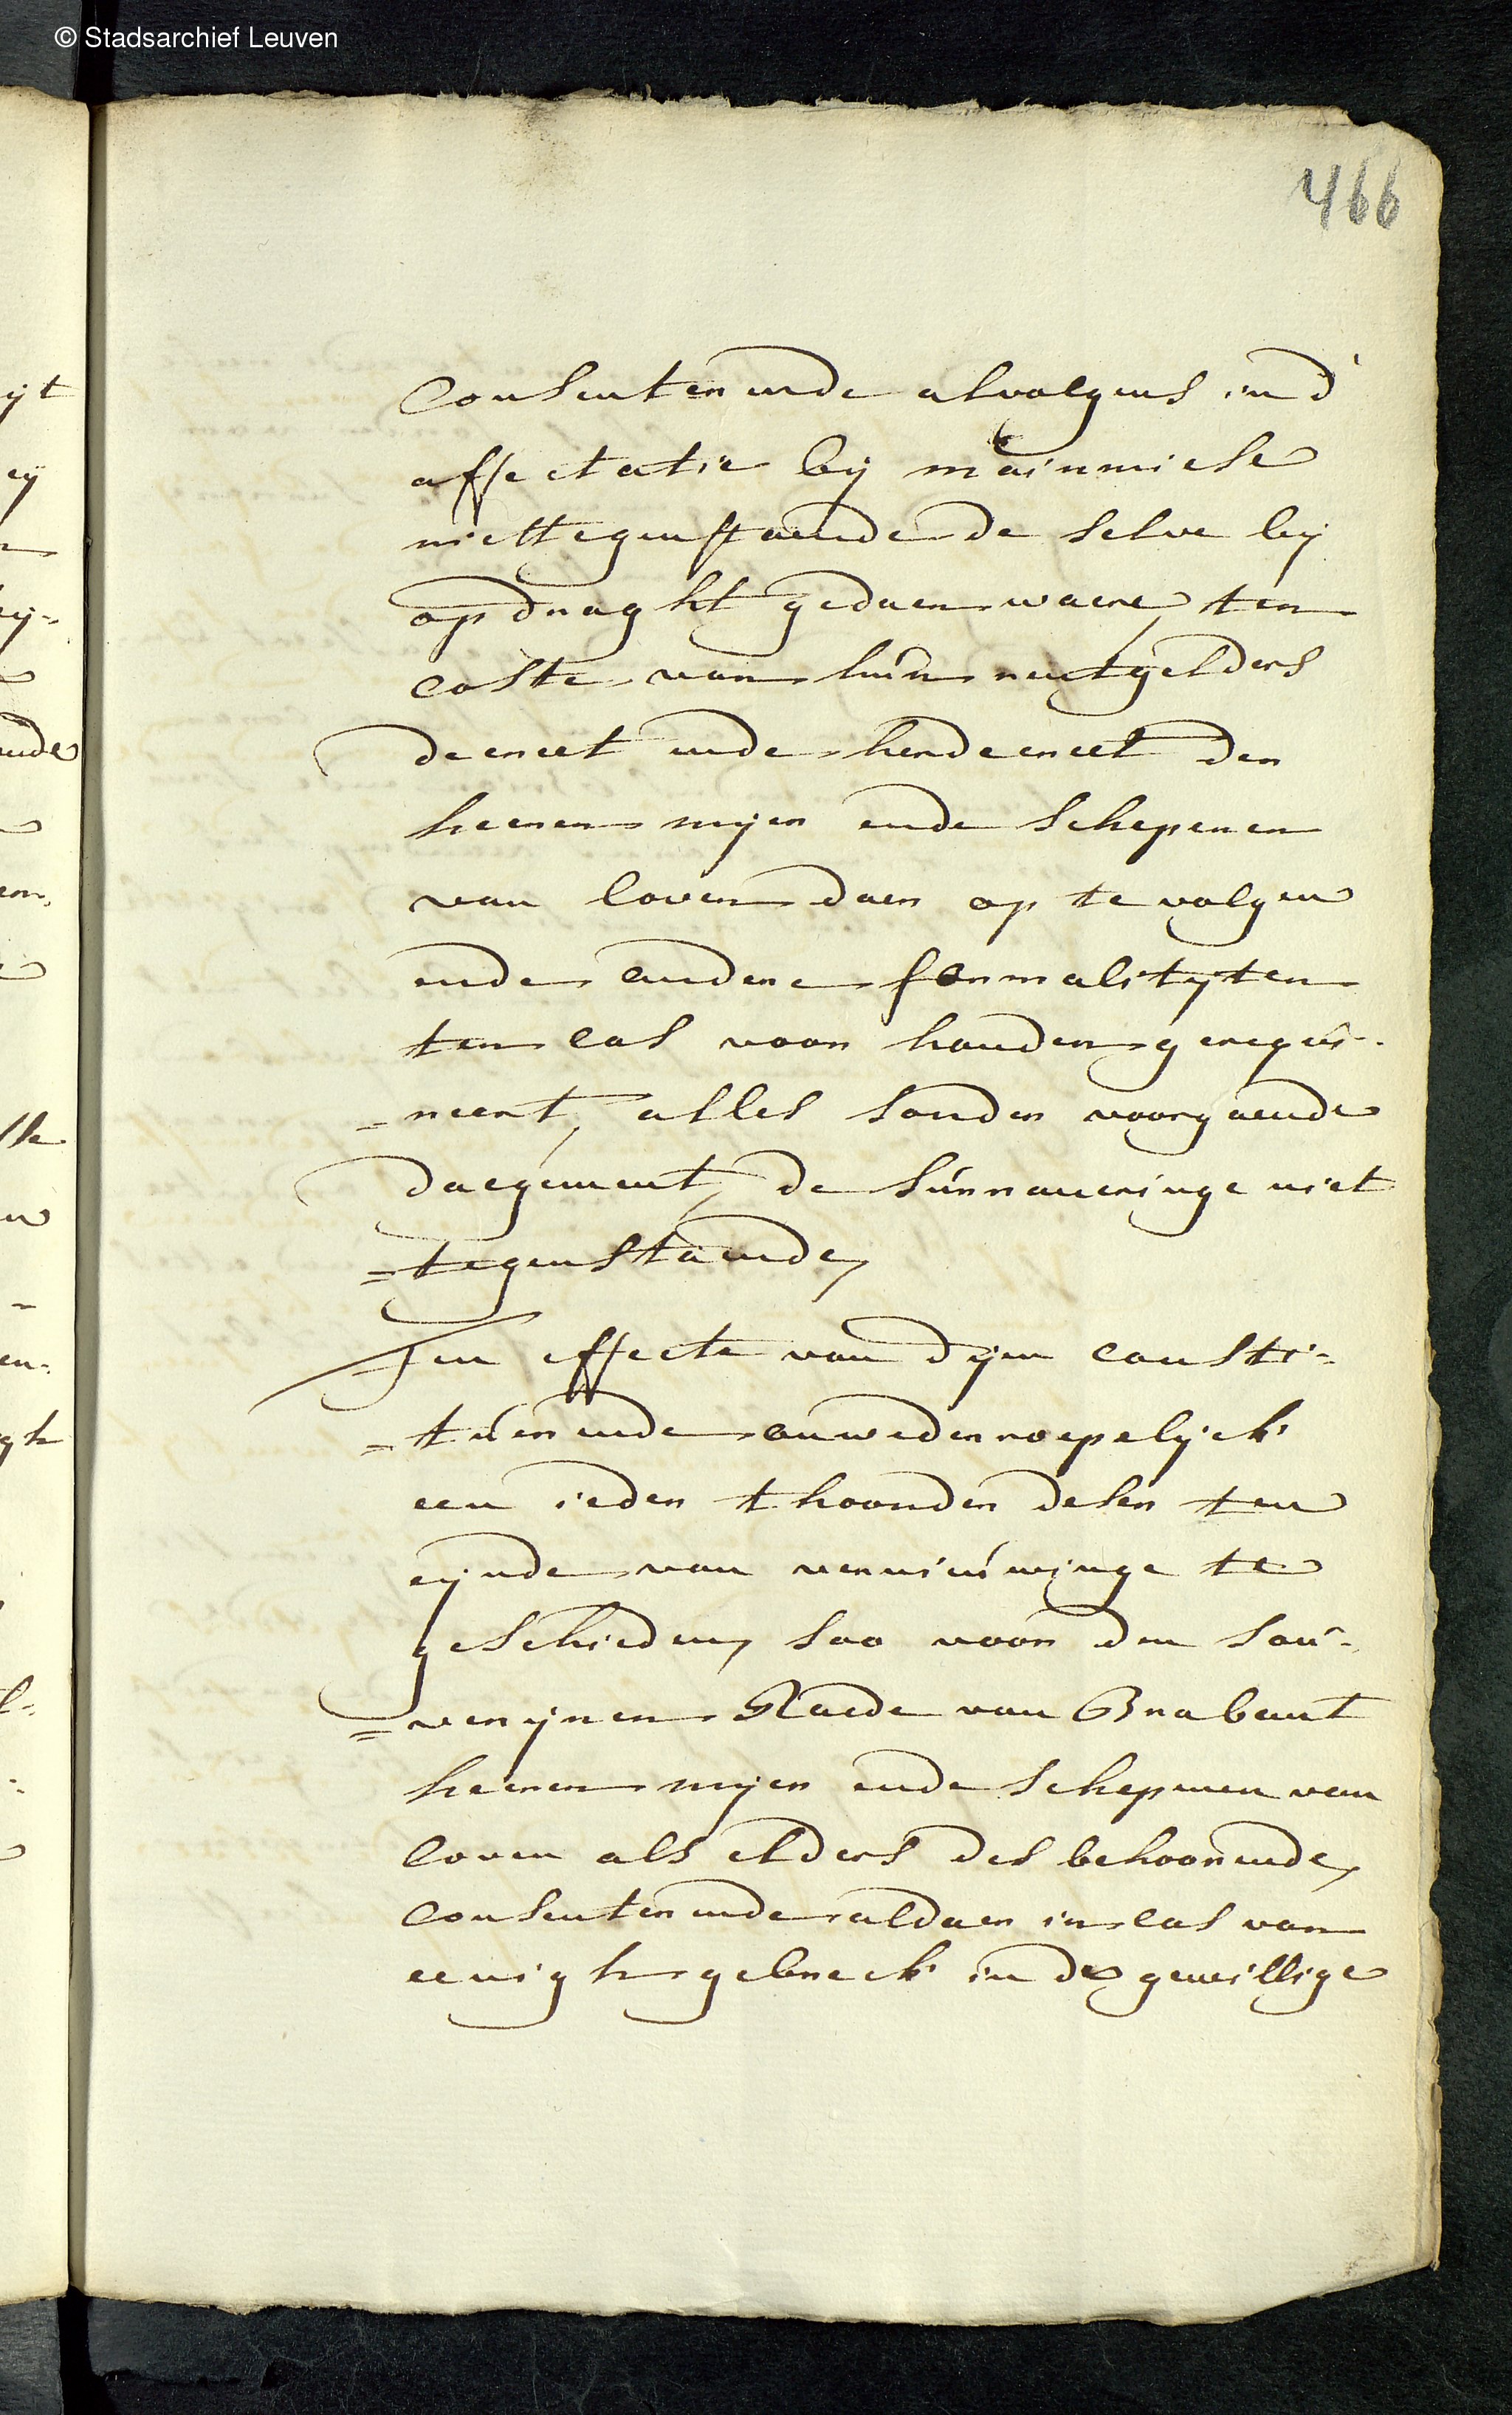 © Stadsarchief Leuven
466
Consenterende alvolgens in d'
affectatie bij mainmiese
niettegenstaende de selve bij
opdraght gedaen waere, ten
coste van hún rentgelders
decreet ende herdecreet der
heeren mijer ende schepenen
van loven daer op te volgen
ende andere formalityten
ten cas voor houden gerequi-
=reert, alles sonder voorgaende
daegement, de súrraneringe niet
=tegenstaende,
Ten effecte van dijen consti=
=túerende onwederroepelijck
een ieder thoonder deser ten
eynde van vernieúwinge te
geschieden, soo voor den soú-
=verynen Raede van Brabant
heeren mijer ende schepenen van
loven als elders des behoorende,
consenterende aldaer in cas van
eenigh gebreck in de gewillige